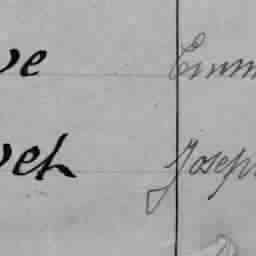 ve Emm
vet Joseph